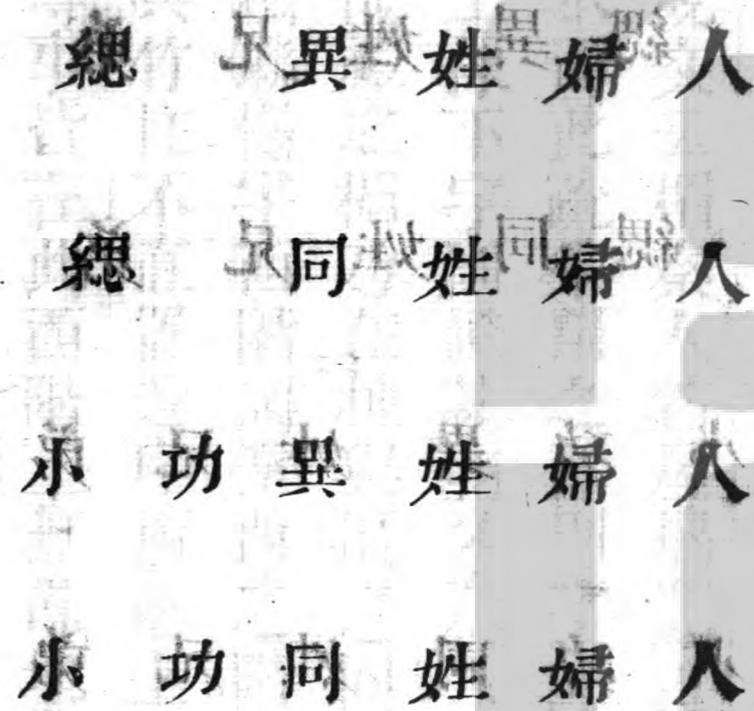 緦異姓婦人
緦同姓婦人
小功異姓婦人
小功同姓婦人